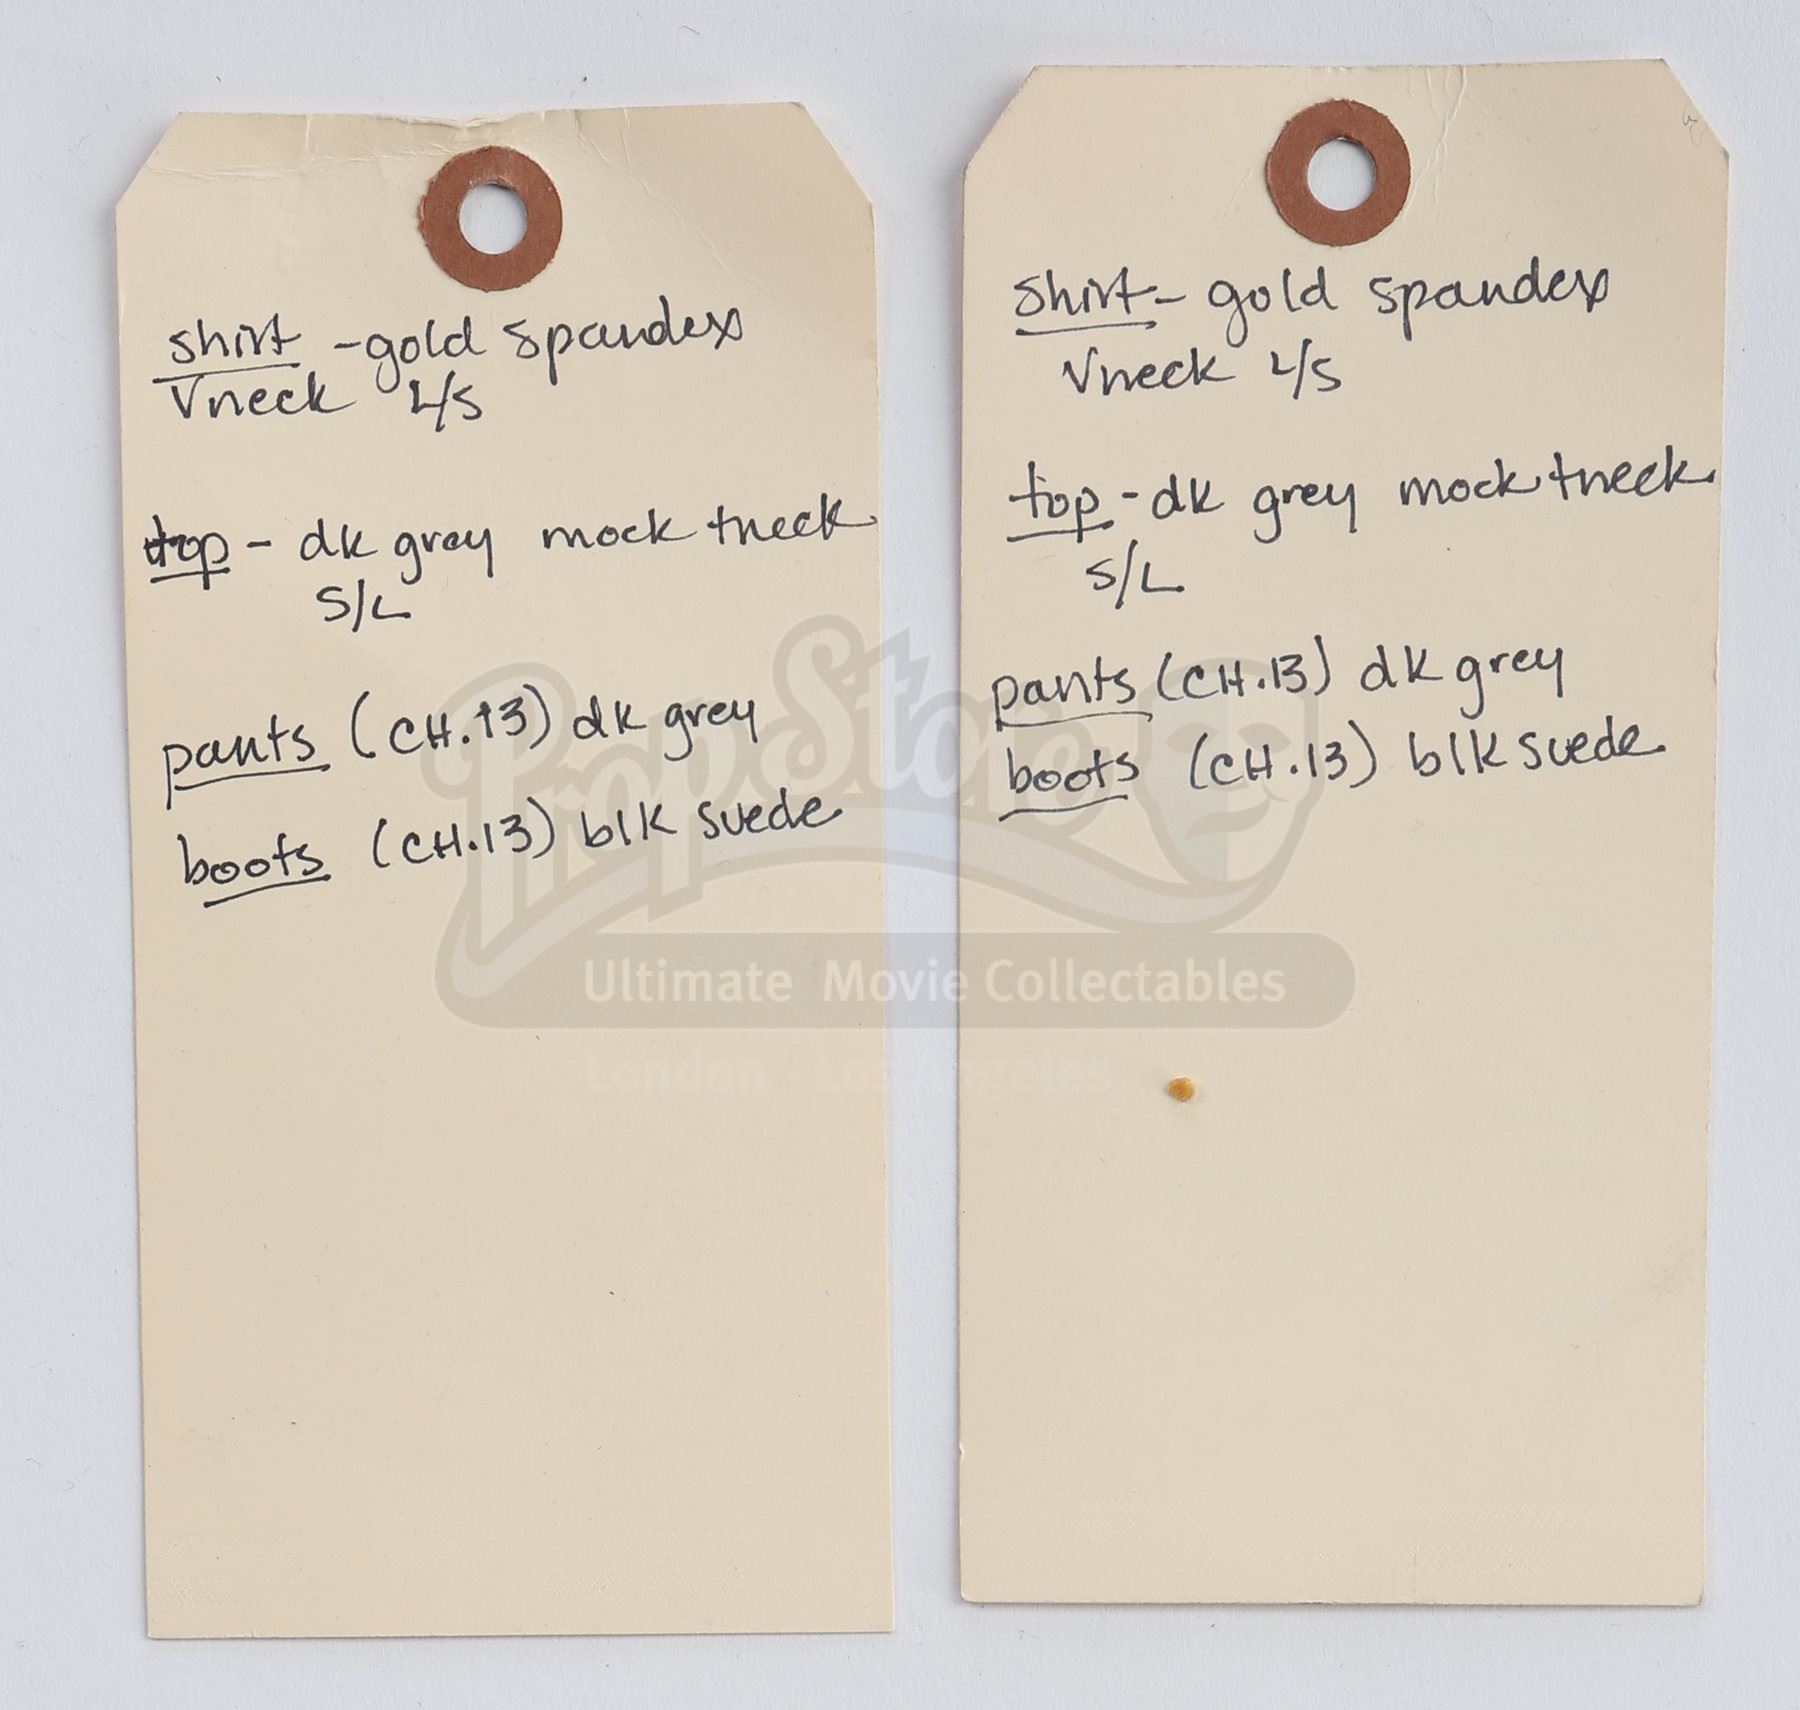 shirt - gold spandex
Vneck L/S
top - dk grey mock tneck
S/L
pants (CH.13) dk grey
boots (CH.13) blk suede
shirt - gold spandex
Vneck L/S
top - dk grey mock tneck
S/L
pants (CH.13) dk grey
boots (CH.13) blk suede
PropStore
Ultimate Movie Collectables
London - Los Angeles